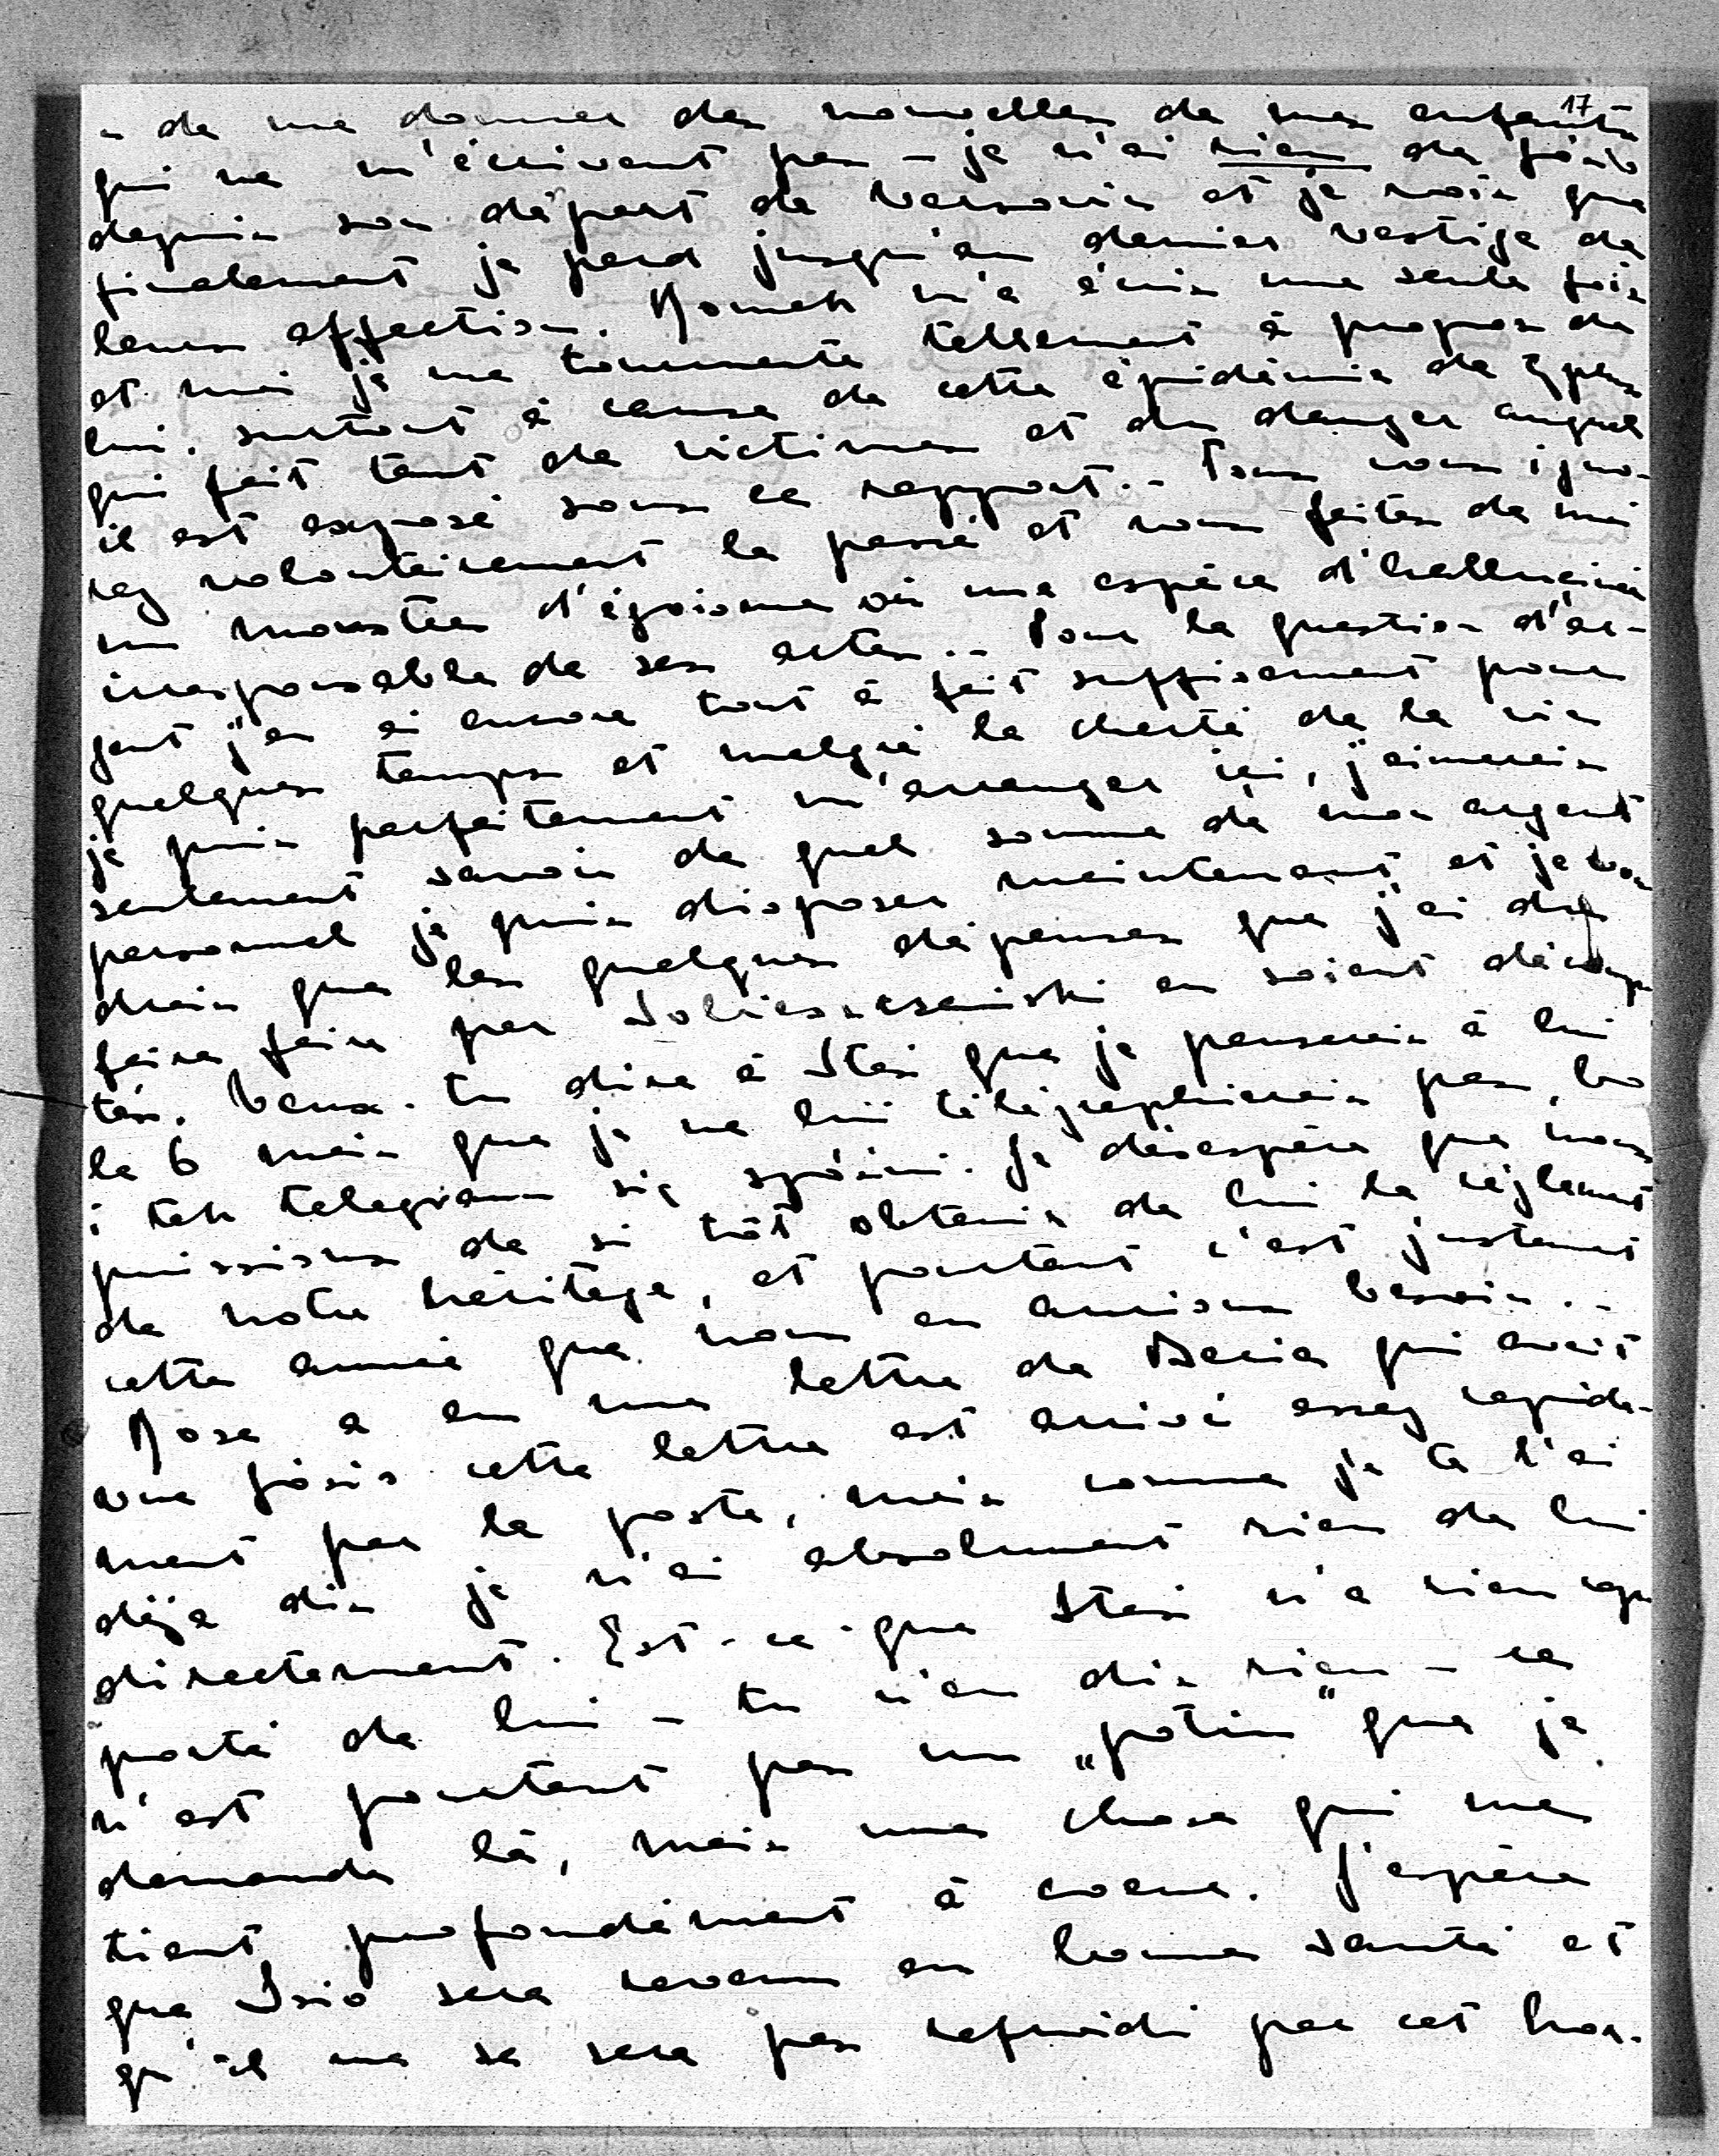 17
- de me donner des nouvelles de mes enfants
qui ne m'écrivent pas - je n'ai rien de Józio
depuis son départ de Varsovie et je vois que
finalement je perd jusqu'au dernier vestige de
leurs affection. Romek m'a écris une seule fois
et moi je me tourmente tellement à propos de
lui, surtout à cause de cette épidémie de typhus
qui fait tant de victimes et du danger auquel
il est exposé sous ce rapport. - Tous vous igno-
rez volontairement le passé et vous faites de moi
un monstre d'égoisme ou une espèce d'halluciné
irresponsable de ses actes. - Pour la question d'ar-
gent j'en ai encore tout à fait suffisament pour
quelques temps et malgré la cherté de la vie
je puis parfaitement m'arranger ici, j'aimerais
seulement savoir de quel somme de mon argent
personnel je puis disposer maintenant et je vou
drais que les quelques dépenses que j'ai du
faire faire par en soient décomp
tés. Veux-tu dire à Stas que je penserais à lui
le 6 mais que je ne lui télégraphierais pas, bo
i tak telegram się spóźni. Je désespère que nous
puissions de si tôt obtenir de lui le règlement
de notre héritage, et pourtant c'est justement
cette année que nous en aurions besoin. -
Rose a eu une lettre de qui avait
vue Józio cette lettre est arrivé assez rapide-
ment par la poste, mais comme je te l'ai
déja dis je n'ai absolument rien de lui
directement. Est-ce-que Stas n'a rien rap
porté de lui - tu n'en dis rien - ce
n'est pourtant pas un „potin" que je
demande là, mais une chose qui me
tient profondément à coeur. J'espère
que Isio sera revenu en bonne santé et
qu'il ne se sera pas refroidi par cet hor-